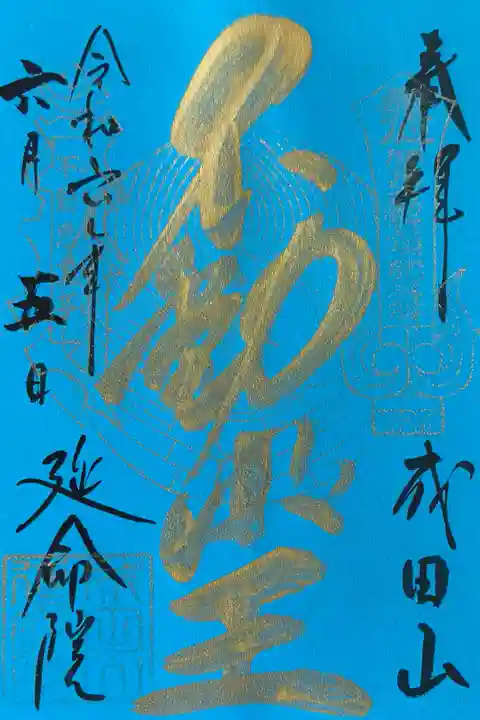 奉拝
成田山
不動明王
令和六年
六月五日
延命院